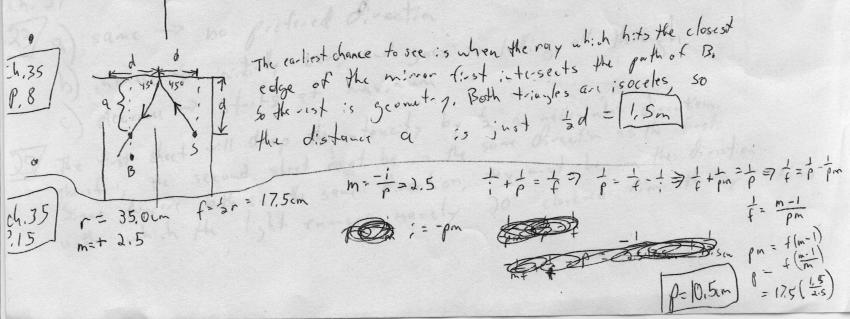 ch.35
P. 8
d
d
45°
45°
a
d
B
S
The earliest chance to see is when the ray which hits the closest
edge of the mirror first intersects the path of B,
so the rest is geometry. Both triangles are isoceles, so
the distance a is just ½d = 1.5m
ch.35
P.15
r = 35.0cm
f = ½r = 17.5cm
m = + 2.5
m = -i/p = 2.5
i = -pm
1/i + 1/p = 1/f ⇒ 1/p = 1/f - 1/i ⇒ 1/f + 1/pm = 1/p ⇒ 1/f = 1/p - 1/pm
1/f = m-1/pm
pm = f(m-1)
p = f(m-1/m)
= 17.5(1.5/2.5)
p = 10.5cm